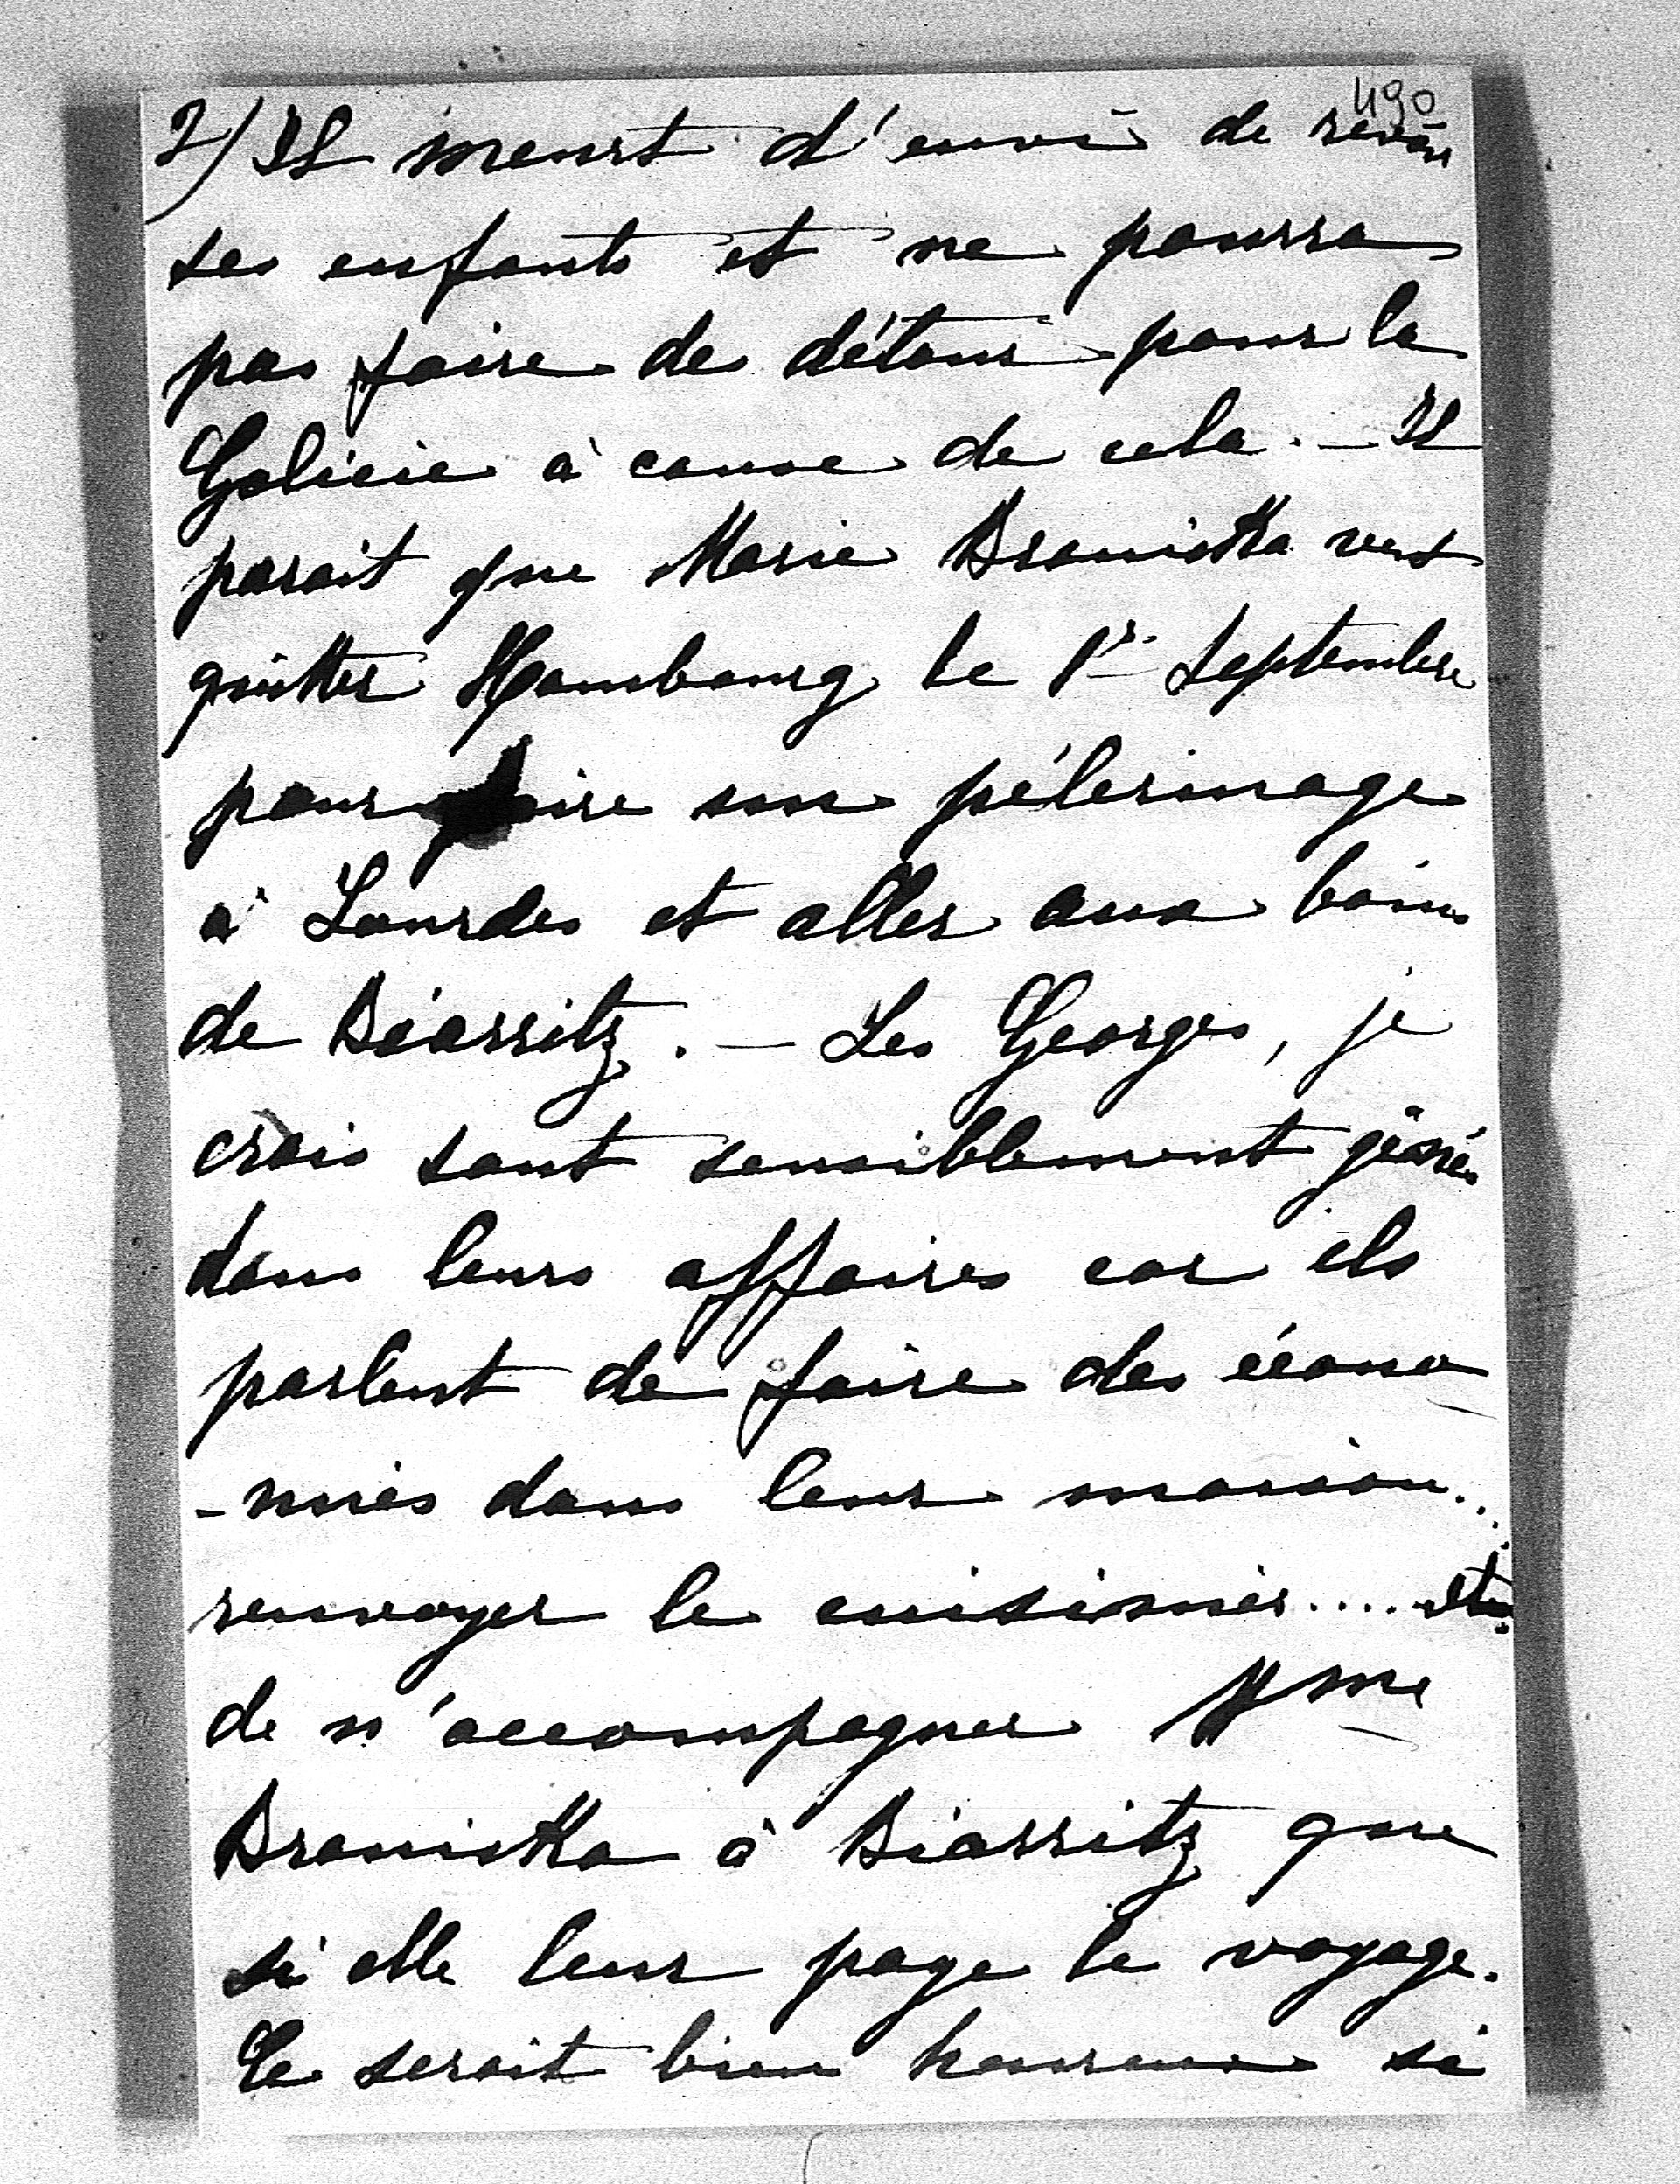 490
2/ Il meurt d'envie de revoir
ses enfants et ne pourra
pas faire de détour pour la
Galicie à cause de cela. — Il
parait que Marie Branicka veut
quitter Hombourg le 1r. Septembre
pour faire un pélerinage
à Lourdes et aller aux bains
de Biarritz. — Les Georges, je
crois sont sensiblement gênés
dans leurs affaires car ils
parlent de faire des écono
-mies dans leur maison..
renvoyer le cuisinier....
de n'accompagner Mme
Branicka à Biarritz que
si elle leur paye le voyage.
Ce serait bien heureux si